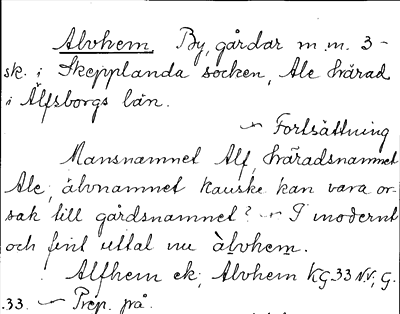 Alvhem. By, gårdar m. m. 3-
sk. i Skepplanda socken, Ale härad
i Älfsborgs län.
~ Fortsättning
Mansnamnet Alf, häradsnamnet
Ale, älvnamnet kanske kan vara or-
sak till gårdsnamnet? ~ I modernt
och fint uttal nu àlvhem.
Alfhem ek, Alvhem KG 33 N.V., G.
.33. ~ Prep. på.